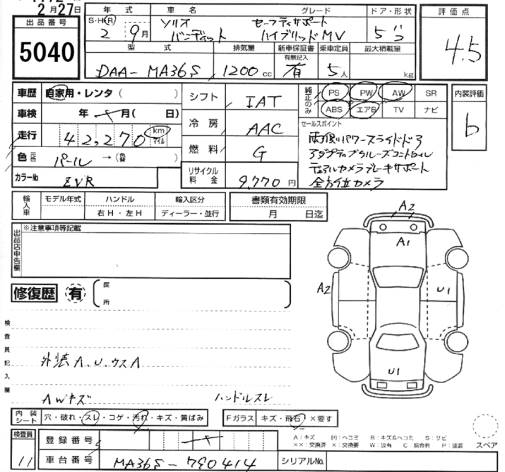 2月27日
出品番号
5040
年式 車名 グレード ドア・形状 評価点
S・H・R 2 9月 ソリオ バンディット セーフティサポート ハイブリッドMV 5ゴ 4.5
型式 排気量 新車保証書 有無記入 乗車定員 最大積載量
DAA-MA36S 1200cc 有 5人 kg
車歴 自家用・レンタ( ) シフト IAT 純正のみ PS PW AW SR 内装評価
ABS エアB TV ナビ b
車検 年 月( 日) 冷房 AAC セールスポイント
走行 42,270 km マイル 両側パワースライドドア
燃料 G アダプティブクルーズコントロール
色 パール→( ) デュアルカメラブレーキサポート
リサイクル料金 9,770円 全方位カメラ
カラーNo ZVR
輸入車 モデル年式 ハンドル 輸入区分 書類有効期限
右H・左H ディーラー・並行 月 日迄
出品店申告欄 ※注意事項等記載
A2
A1
A2 U1
修復歴 有 箇所
検査員記入欄
U1
外装A.U.ウスA
AWキズ ハンドルスレ
内装シート 穴・破れ・スレ・コゲ・汚れ・キズ・黄ばみ Fガラス キズ・飛石・×要す
検査員 11 登録番号
A:キズ
スペア
車台番号 MA36S-790414 シリアルNo.